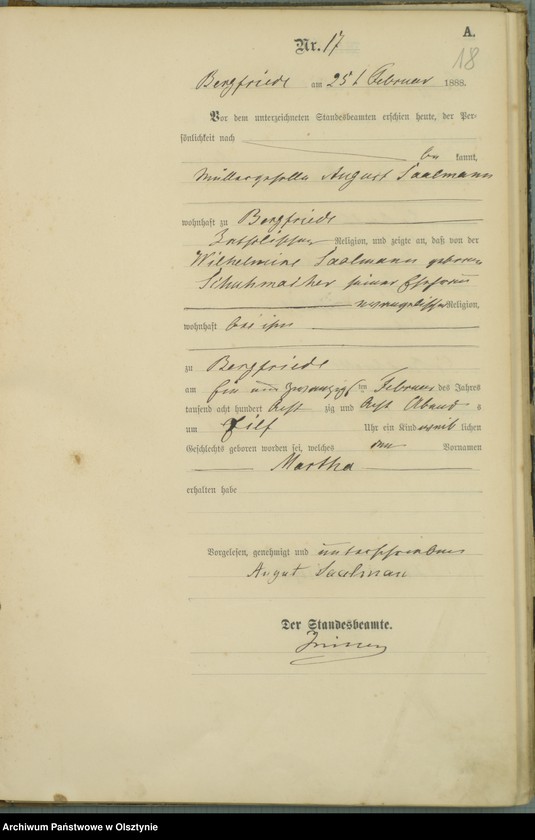 A.
Nr. 17
18
Bergfriede am 25t Februar 1888.
Vor dem unterzeichneten Standesbeamten erschien heute, der Per-
sönlichkeit nach
be kannt,
Müllergeselle August Saalmann
wohnhaft zu Bergfriede
Religion, und zeigte an, daß von der
Wilhelmine Saalmann geborene
Schuhmacher seiner Ehefrau
evangelischer Religion,
wohnhaft bei ihm
zu Bergfriede
am ein und zwanzigsten Februar des Jahres
tausend acht hundert acht zig und acht Abend s
um Eilf Uhr ein Kind weib lichen
Geschlechts geboren worden sei, welches den Vornamen
Martha
erhalten habe
Vorgelesen, genehmigt und unterschrieben
August Saalman
Der Standesbeamte.
Archiwum Państwowe w Olsztynie